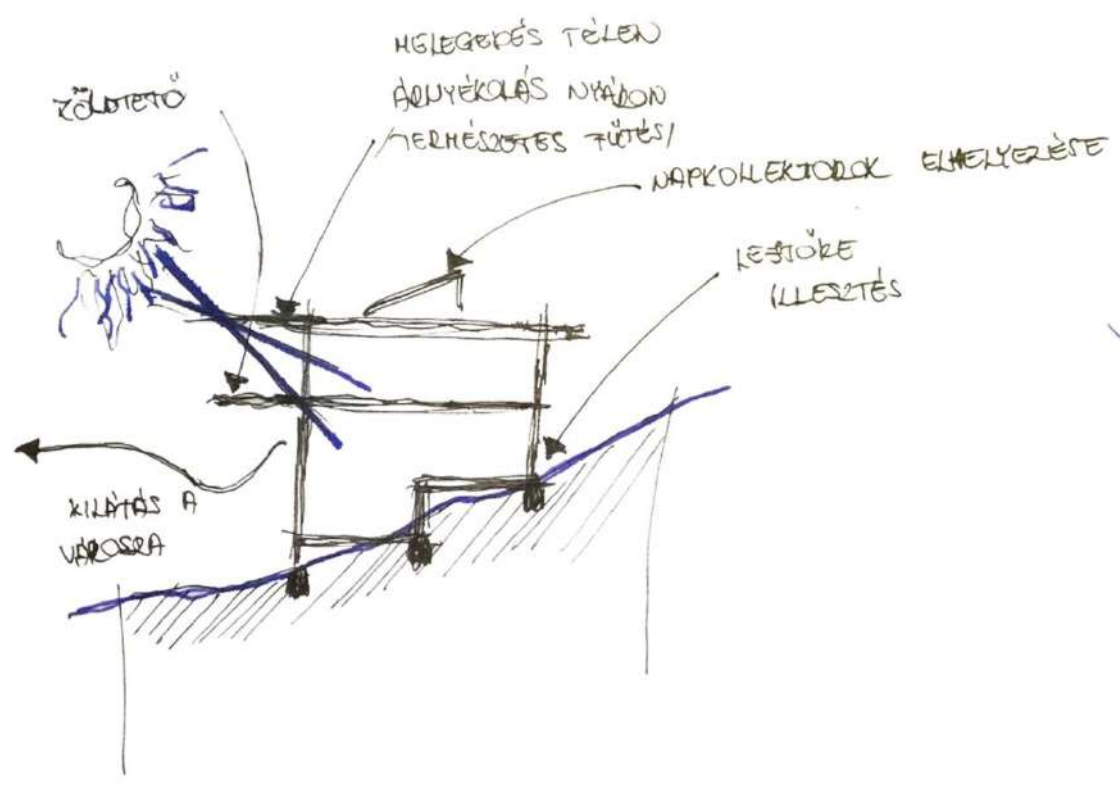 MELEGEDÉS TÉLEN
ÁRNYÉKOLÁS NYÁRON
/TERMÉSZETES FŰTÉS/
ZÖLDTETŐ
NAPKOLLEKTOROK ELHELYEZÉSE
LEJTŐRE
ILLESZTÉS
KILÁTÁS A
VÁROSRA